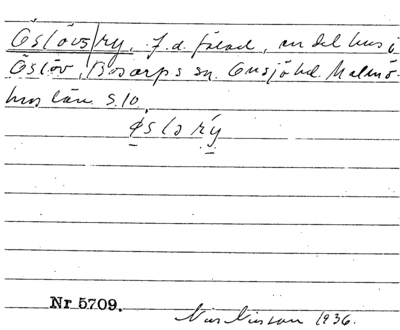 Öslövs|ry, f.d. fälad, en del hus i
Öslöv, Bosarps sn. Onsjö hd. Malmö-
hus län. S.10.
øslorý
Nr 5709.
1936.